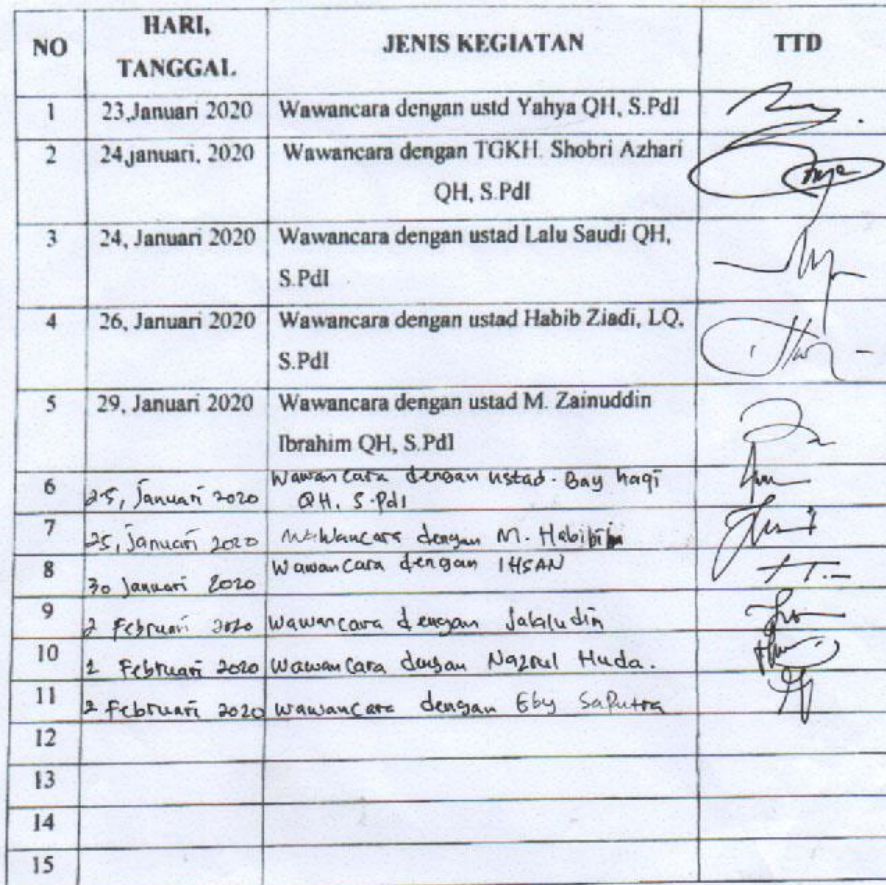 NO HARI, TANGGAL JENIS KEGIATAN TTD
1 23,Januari 2020 Wawancara dengan ustd Yahya QH, S.PdI
2 24,januari, 2020 Wawancara dengan TGKH. Shobri Azhari
QH, S.PdI
3 24, Januari 2020 Wawancara dengan ustad Lalu Saudi QH,
S.PdI
4 26, Januari 2020 Wawancara dengan ustad Habib Ziadi, LQ,
S.PdI
5 29, Januari 2020 Wawancara dengan ustad M. Zainuddin
Ibrahim QH, S.PdI
6 25, Januari 2020 Wawancara dengan ustad. Bay haqi
QH, S.PdI
7 25, Januari 2020 Wawancara dengan M.
8 30 Januari 2020 Wawancara dengan IHSAN
9 2 Februari 2020 Wawancara dengan Jalaludin
10 Februari 2020 Wawancara dengan Nazrul Huda.
11 2 Februari 2020 Wawancara dengan Eby Saputra
12
13
14
15